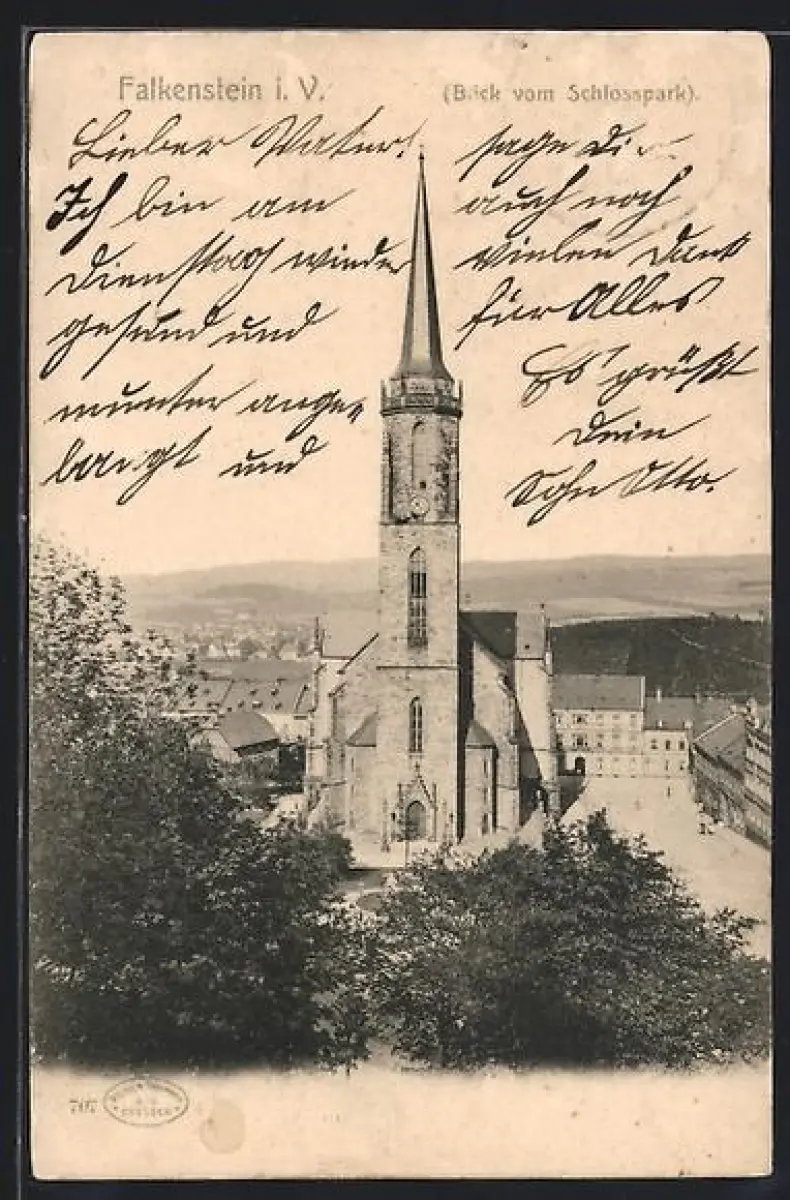 Falkenstein i. V.
(Blick vom Schlosspark).
Lieber Vater!
Ich bin am
Dienstag wieder
gesund und
munter ange-
langt und
sage Dir
auch noch
vielen Dank
für Alles
Es grüßt
Dein
Sohn Otto.
707
DRESDEN